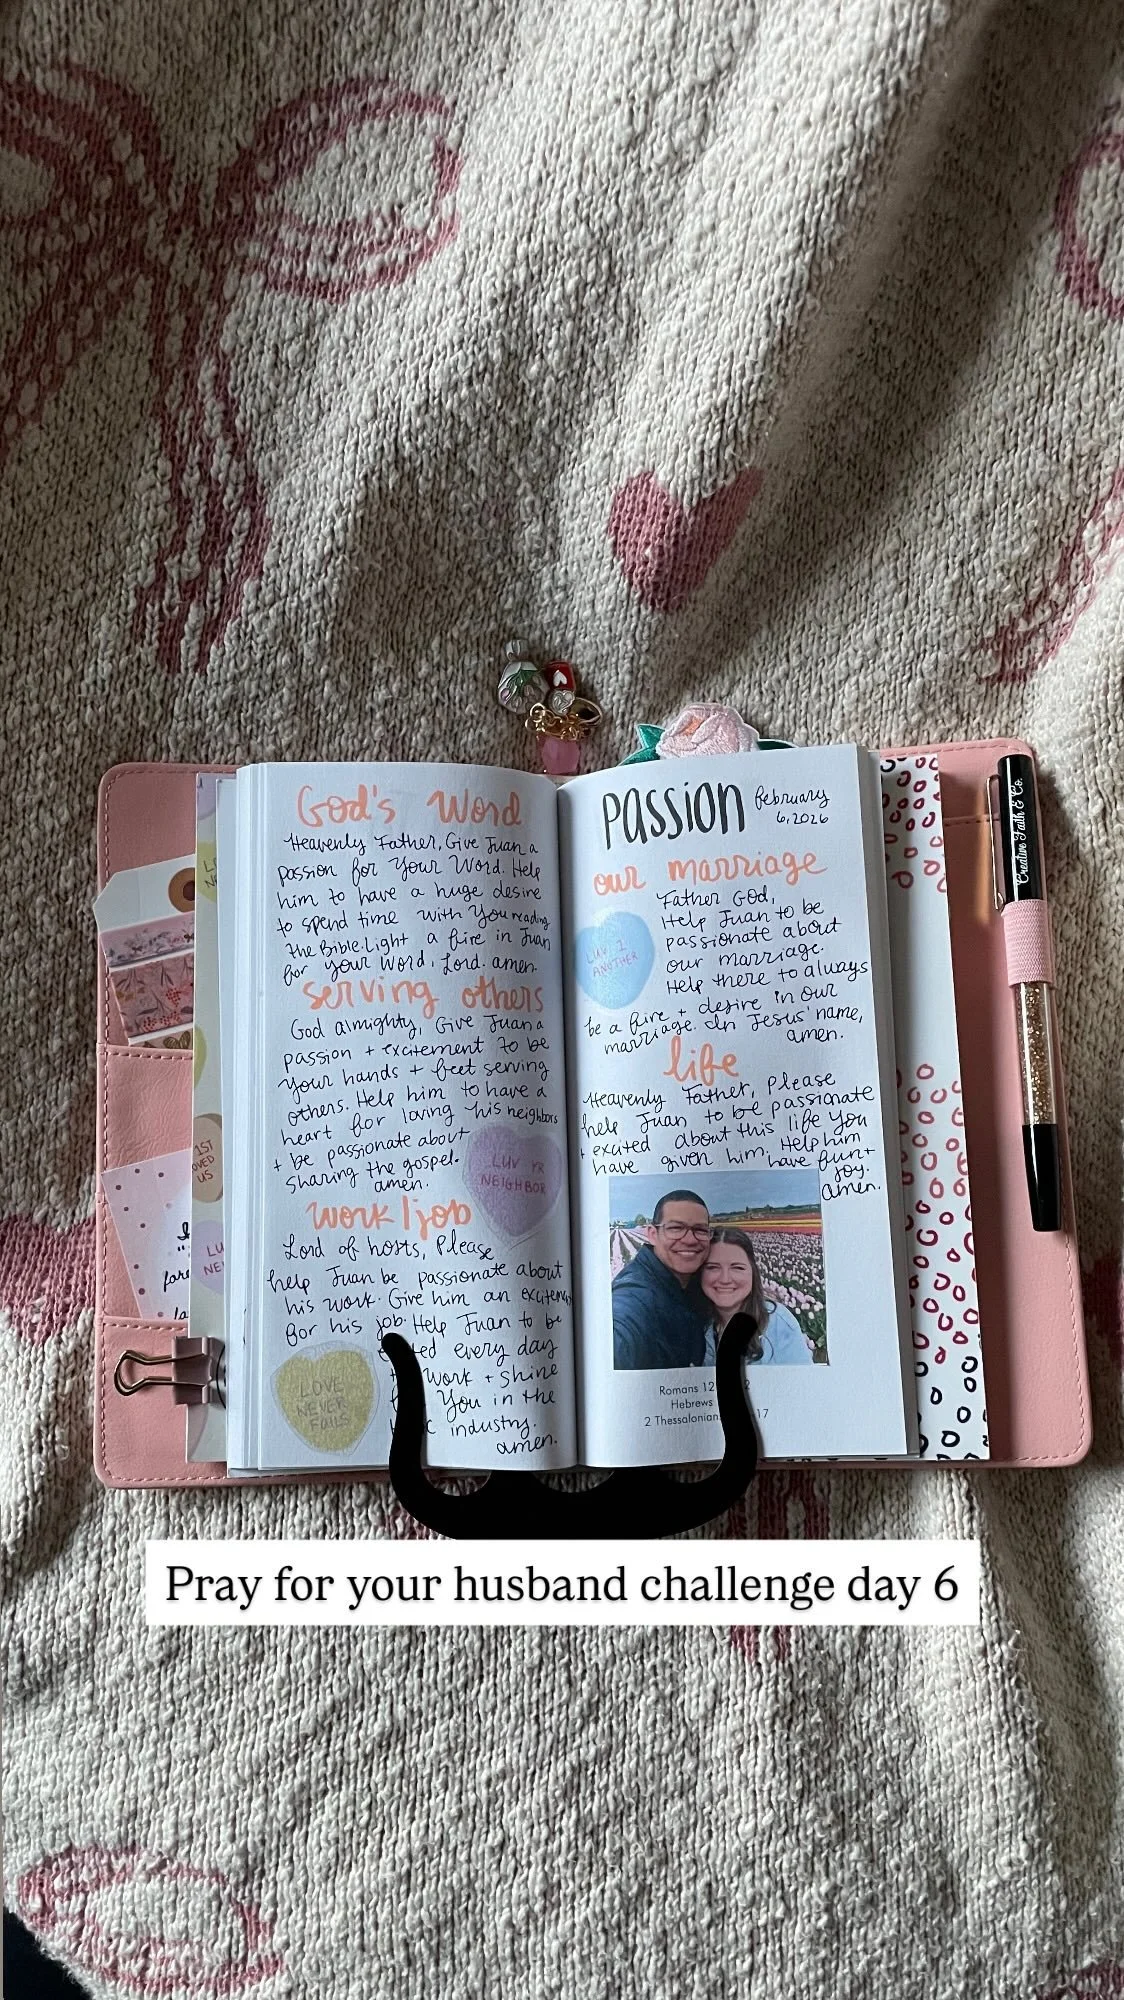 God's Word
Heavenly Father, Give Juan a
passion for Your Word. Help
him to have a huge desire
to spend time with You reading
the Bible. Light a fire in Juan
for your Word, Lord. amen.
serving others
God almighty, Give Juan a
passion + excitement to be
Your hands + feet serving
others. Help him to have a
heart for loving his neighbors
+ be passionate about
sharing the gospel.
amen.
LUV YR
NEIGHBOR
work/job
Lord of hosts, Please
help Juan be passionate about
his work. Give him an excitement
for his job. Help Juan to be
every day
work + shine
You in the
industry.
amen.
LOVE
NEVER
FAILS
passion
february
6, 2026
our marriage
Father God,
Help Juan to be
passionate about
our marriage.
Help there to always
be a fire + desire in our
marriage. In Jesus' name,
amen.
LUV 1
ANOTHER
life
Heavenly Father, Please
help Juan to be passionate
+ excited about this life You
have given him. Help him
have fun +
joy.
amen.
Romans 12
Hebrews
2 Thessalonians 17
1ST
US
Creative Faith & Co.
Pray for your husband challenge day 6